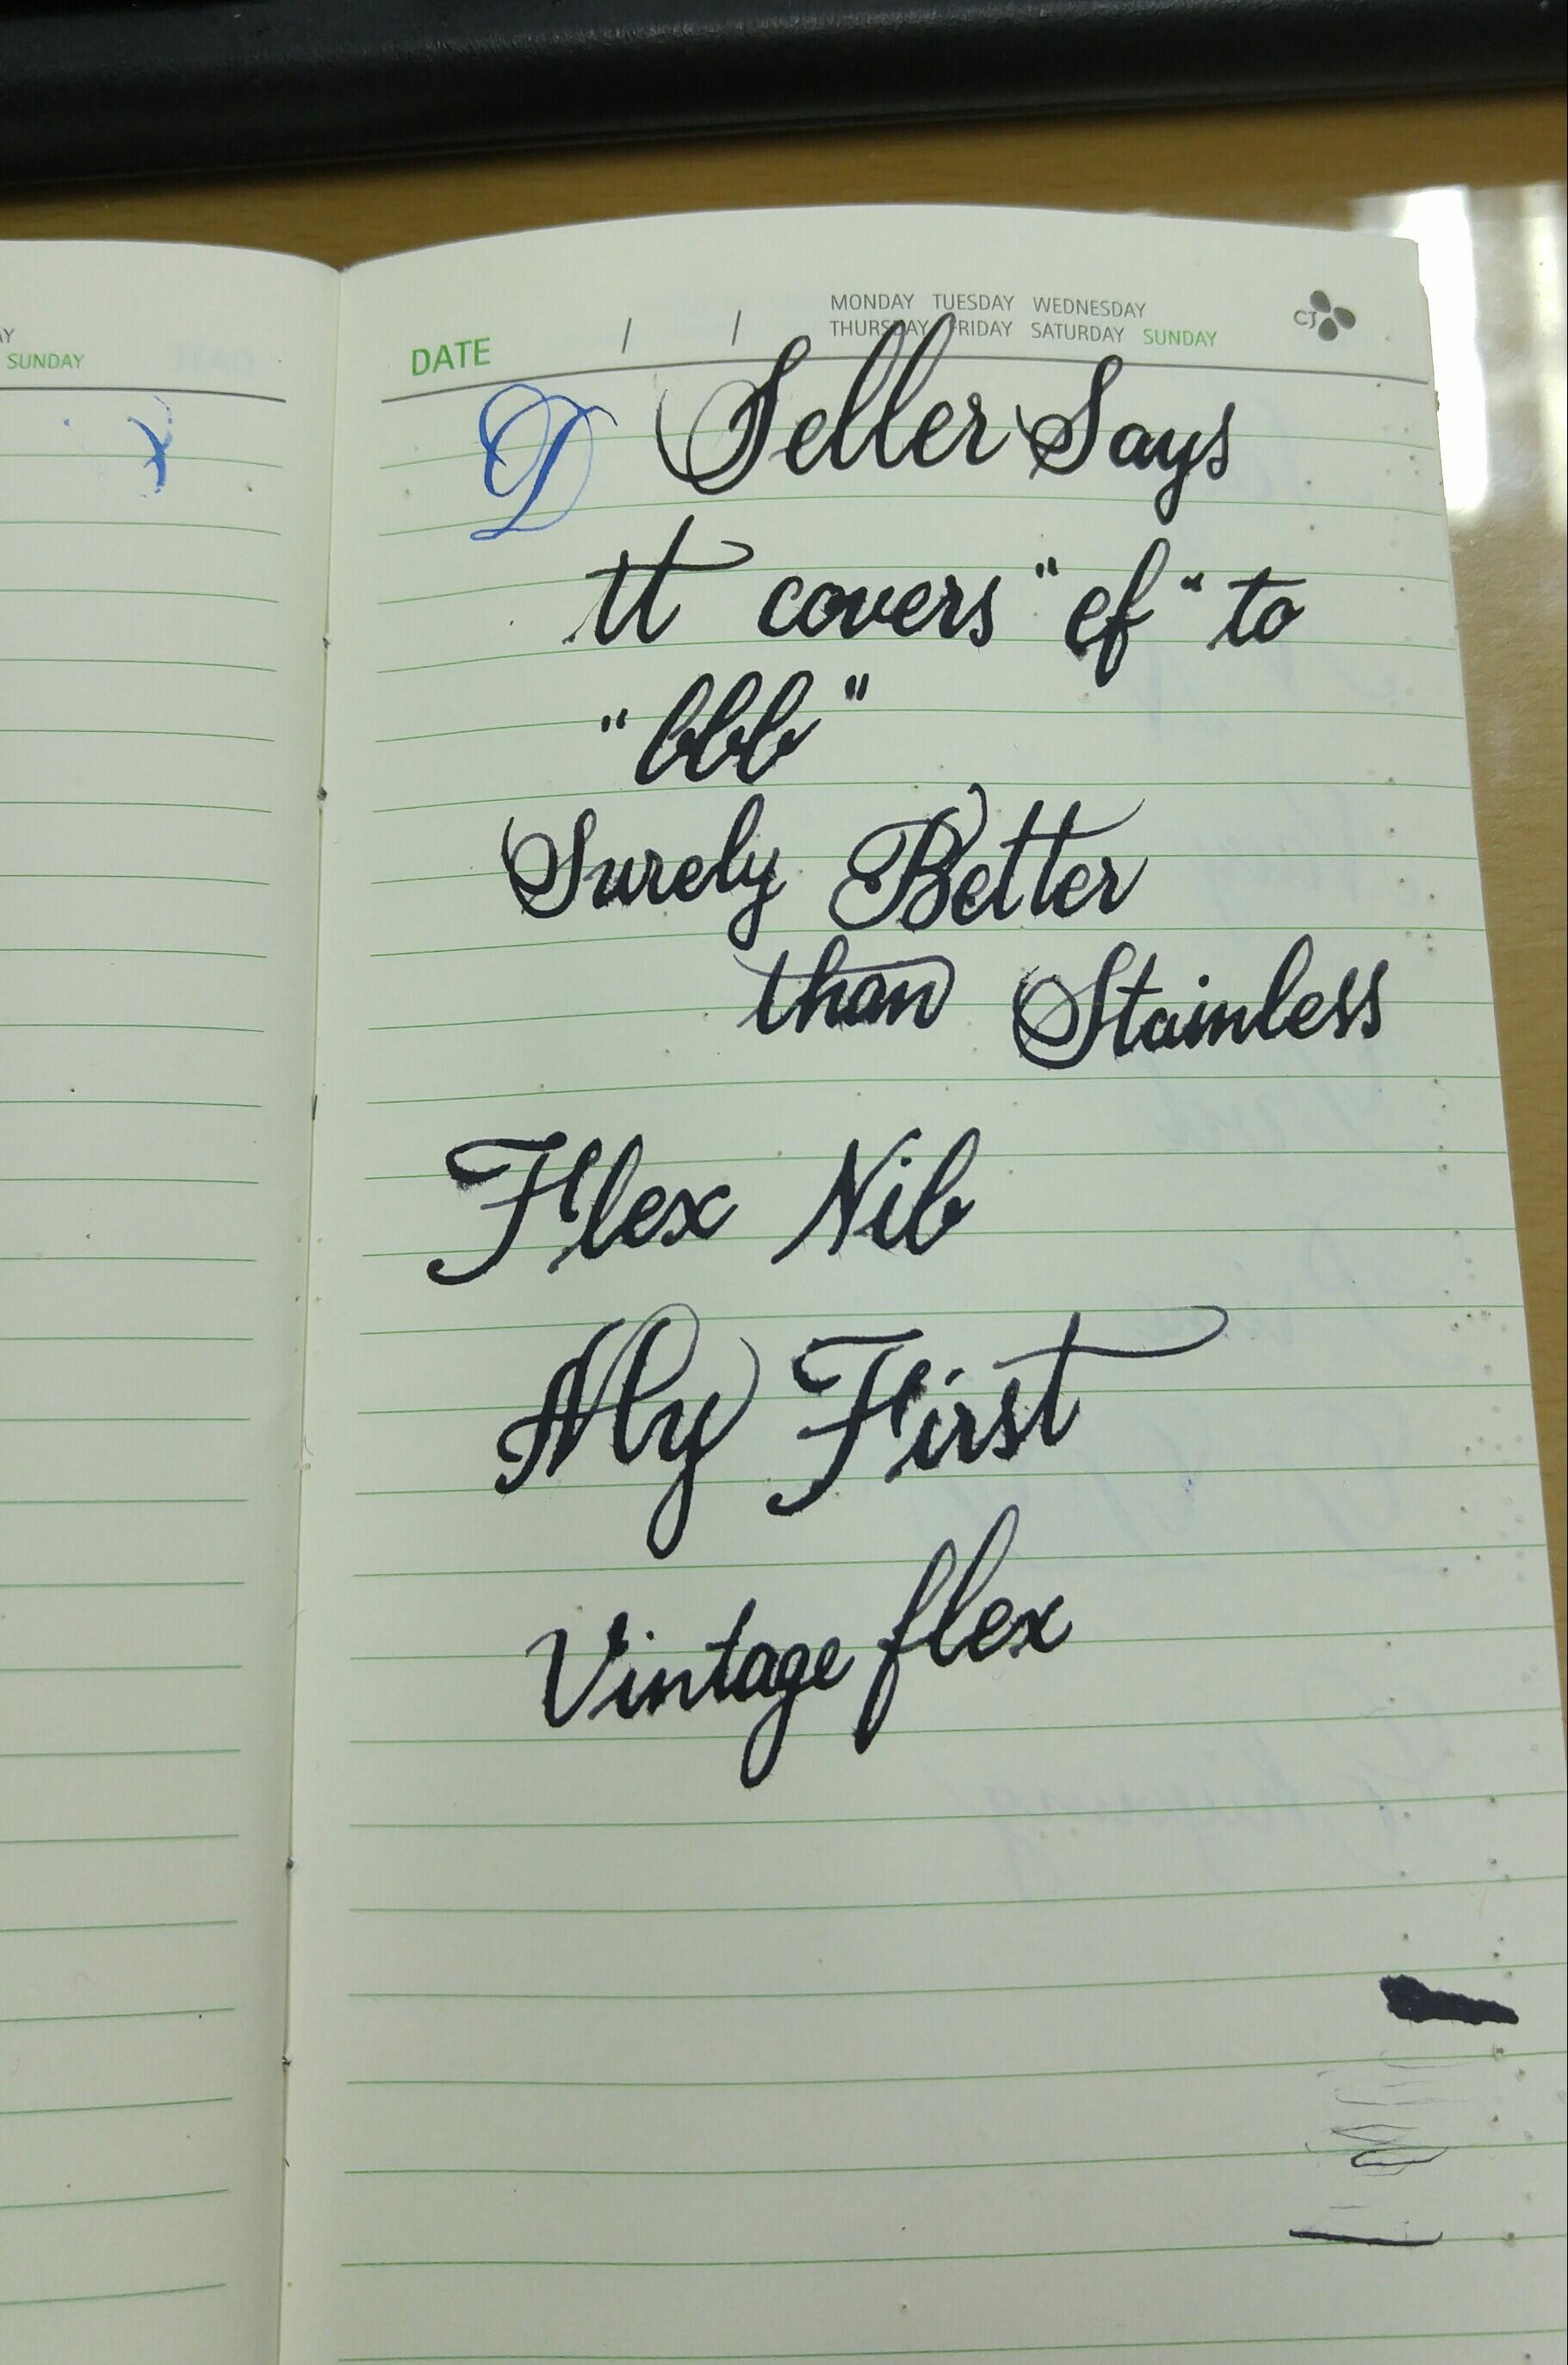 AY
SUNDAY
MONDAY TUESDAY WEDNESDAY
THURSDAY FRIDAY SATURDAY SUNDAY
CJ
DATE / /
D Seller Says
It covers "ef" to
"bbb"
Surely Better
than Stainless
Flex Nib
My First
Vintage flex